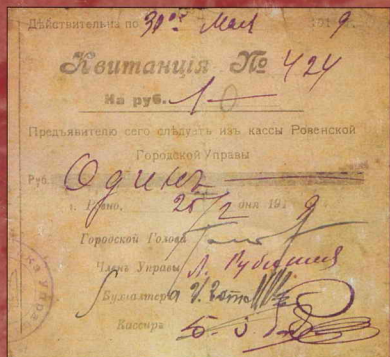 Дѣйствительна по 30го Мая 1919 г.
Квитанція № 424
На руб. 1—
Предъявителю сего слѣдуетъ изъ кассы Ровенской
Городской Управы
Руб. Одинъ
г. Ровно, 25/2 дня 1919
Городской Голова
Членъ Управы Л.
Бухгалтеръ
Кассиръ